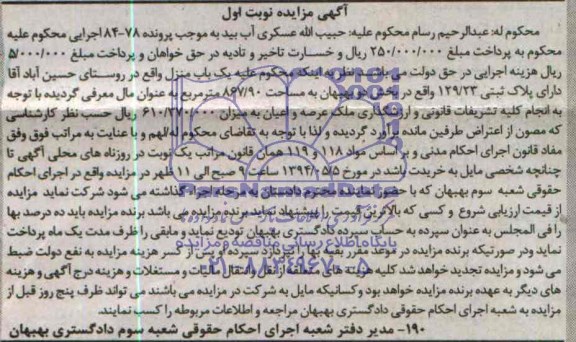 آگهی مزایده نوبت اول
محکوم له: عبدالرحیم رسام محکوم علیه: حبیب الله عسکری آب بید به موجب پرونده ۷۸-۸۴ اجرایی محکوم علیه
محکوم به پرداخت مبلغ ۲۵۰/۰۰۰/۰۰۰ ریال و خسارت تاخیر و تادیه در حق خواهان و پرداخت مبلغ ۵/۰۰۰/۰۰۰
ریال هزینه اجرایی در حق دولت می باشد و نظر به اینکه محکوم علیه یک باب منزل واقع در روستای حسین آباد آقا
دارای پلاک ثبتی ۱۲۹/۲۳ واقع در بخش بهبهان به مساحت ۸۶۷/۹۰ مترمربع به عنوان مال معرفی گردیده با توجه
به انجام کلیه تشریفات قانونی و ارزشگذاری ملک عرصه و اعیان به میزان ۶۱۰/۳۷۰/۰۰۰ ریال حسب نظر کارشناسی
که مصون از اعتراض طرفین مانده برآورد گردیده و لذا با توجه به تقاضای محکوم له/لهم و با عنایت به مراتب فوق وفق
مفاد قانون اجرای احکام مدنی و بر اساس مواد ۱۱۸ و ۱۱۹ همان قانون مراتب یک نوبت در روزنامه های محلی آگهی تا
چنانچه شخصی مایل به خریدت باشد در مورخ ۱۳۹۴/۰۵/۵ ساعت ۹ صبح الی ۱۱ ظهر در مزایده واقع در اجرای احکام
حقوقی شعبه سوم بهبهان که با حضور نماینده محترم دادستان به مرحله اجراء گذاشته می شود شرکت نماید مزایده
از قیمت ارزیابی شروع و کسی که بالاترین قیمت را پیشنهاد نماید برنده مزایده می باشد برنده مزایده باید ده درصد بها
را فی المجلس به عنوان سپرده به حساب سپرده دادگستری بهبهان تودیع نماید و مابقی را ظرف مدت یک ماه پرداخت
نماید ودر صورتیکه برنده مزایده در موعد مقرر بقیه بها را نپردازد سپرده او پس از کسر هزینه مزایده به نفع دولت ضبط
می شود و مزایده تجدید خواهد شد کلیه هزینه های متعلقه از نقل و انتقال مالیات و مستغلات و هزینه درج آگهی و هزینه
های دیگر به عهده برنده مزایده خواهد بود وکسانیکه مایل به شرکت در مزایده می باشند می تواند ظرف پنج روز قبل از
مزایده به شعبه اجرای احکام حقوقی دادگستری بهبهان مراجعه و اطلاعات مربوطه را کسب نمایند.
۱۹۰- مدیر دفتر شعبه اجرای احکام حقوقی شعبه سوم دادگستری بهبهان
پایگاه اطلاع رسانی مناقصه و مزایده